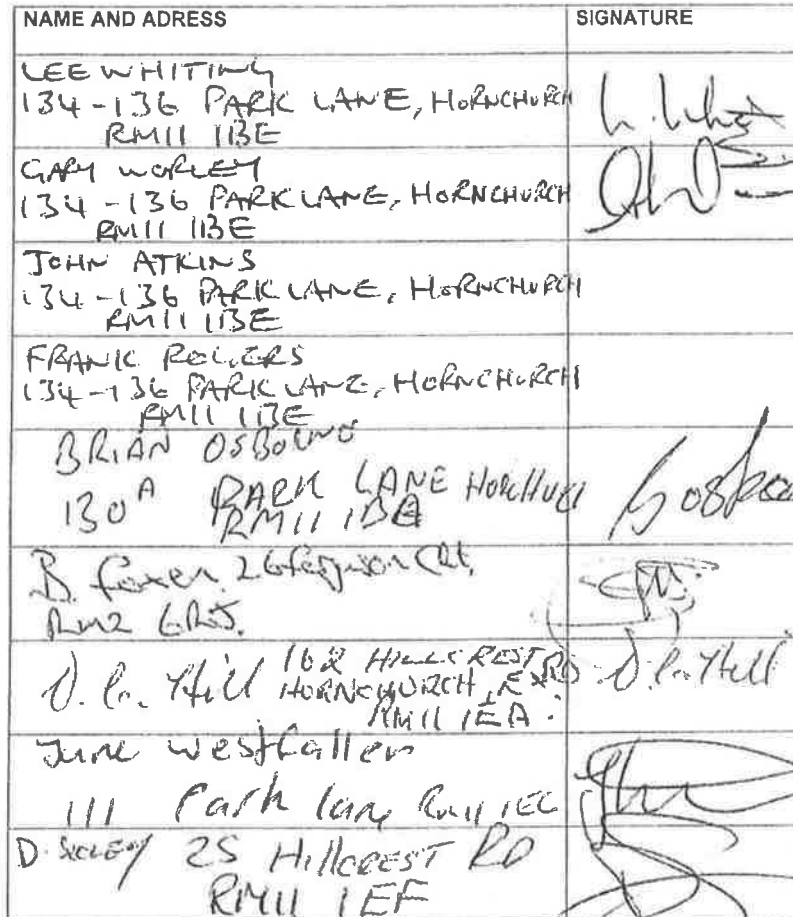 NAME AND ADRESS
SIGNATURE
LEE WHITING
134-136 PARK LANE, HORNCHURCH
RM11 1BE
L. Whit
GARY WORLEY
134-136 PARK LANE, HORNCHURCH
RM11 1BE
JOHN ATKINS
134-136 PARK LANE, HORNCHURCH
RM11 1BE
FRANK ROGERS
134-136 PARK LANE, HORNCHURCH
RM11 1BE
BRIAN
130A PARK LANE
RM11 1BE
B.
RM2
D. Hill 162 HILLCREST RD
HORNCHURCH, EX.
RM11 1EA.
D. Hill
June Westfallen
111 Park lane RM11 1EG
D. 25 Hillcrest RD
RM11 1EF